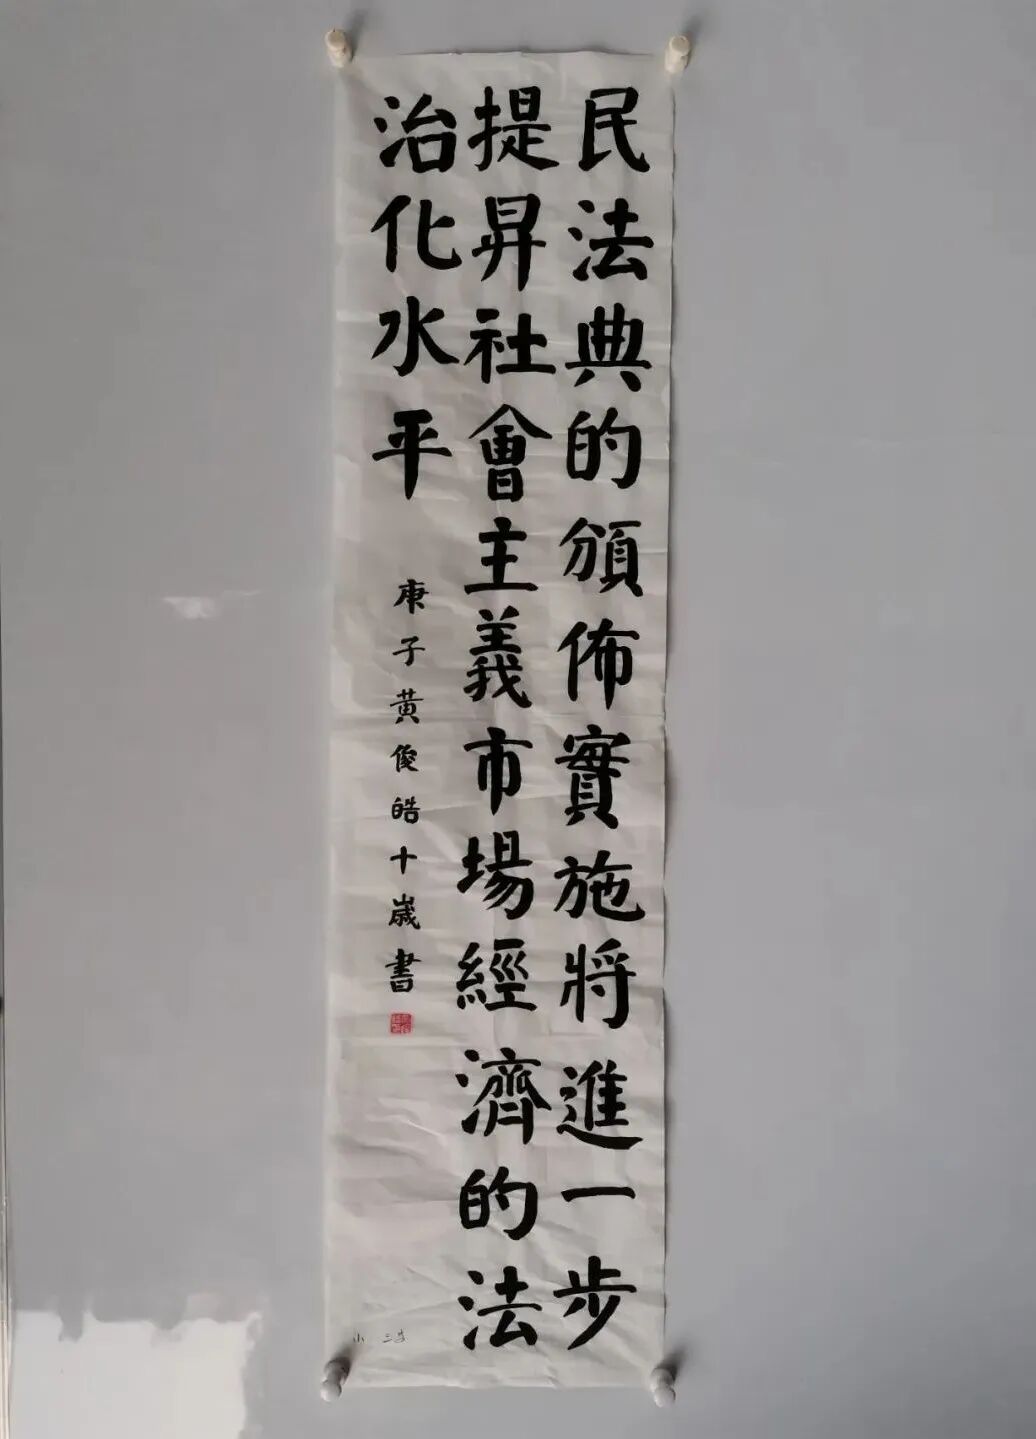 民法典的頒佈實施將進一步
提昇社會主義市場經濟的法
治化水平
庚子黄俊皓十歲書